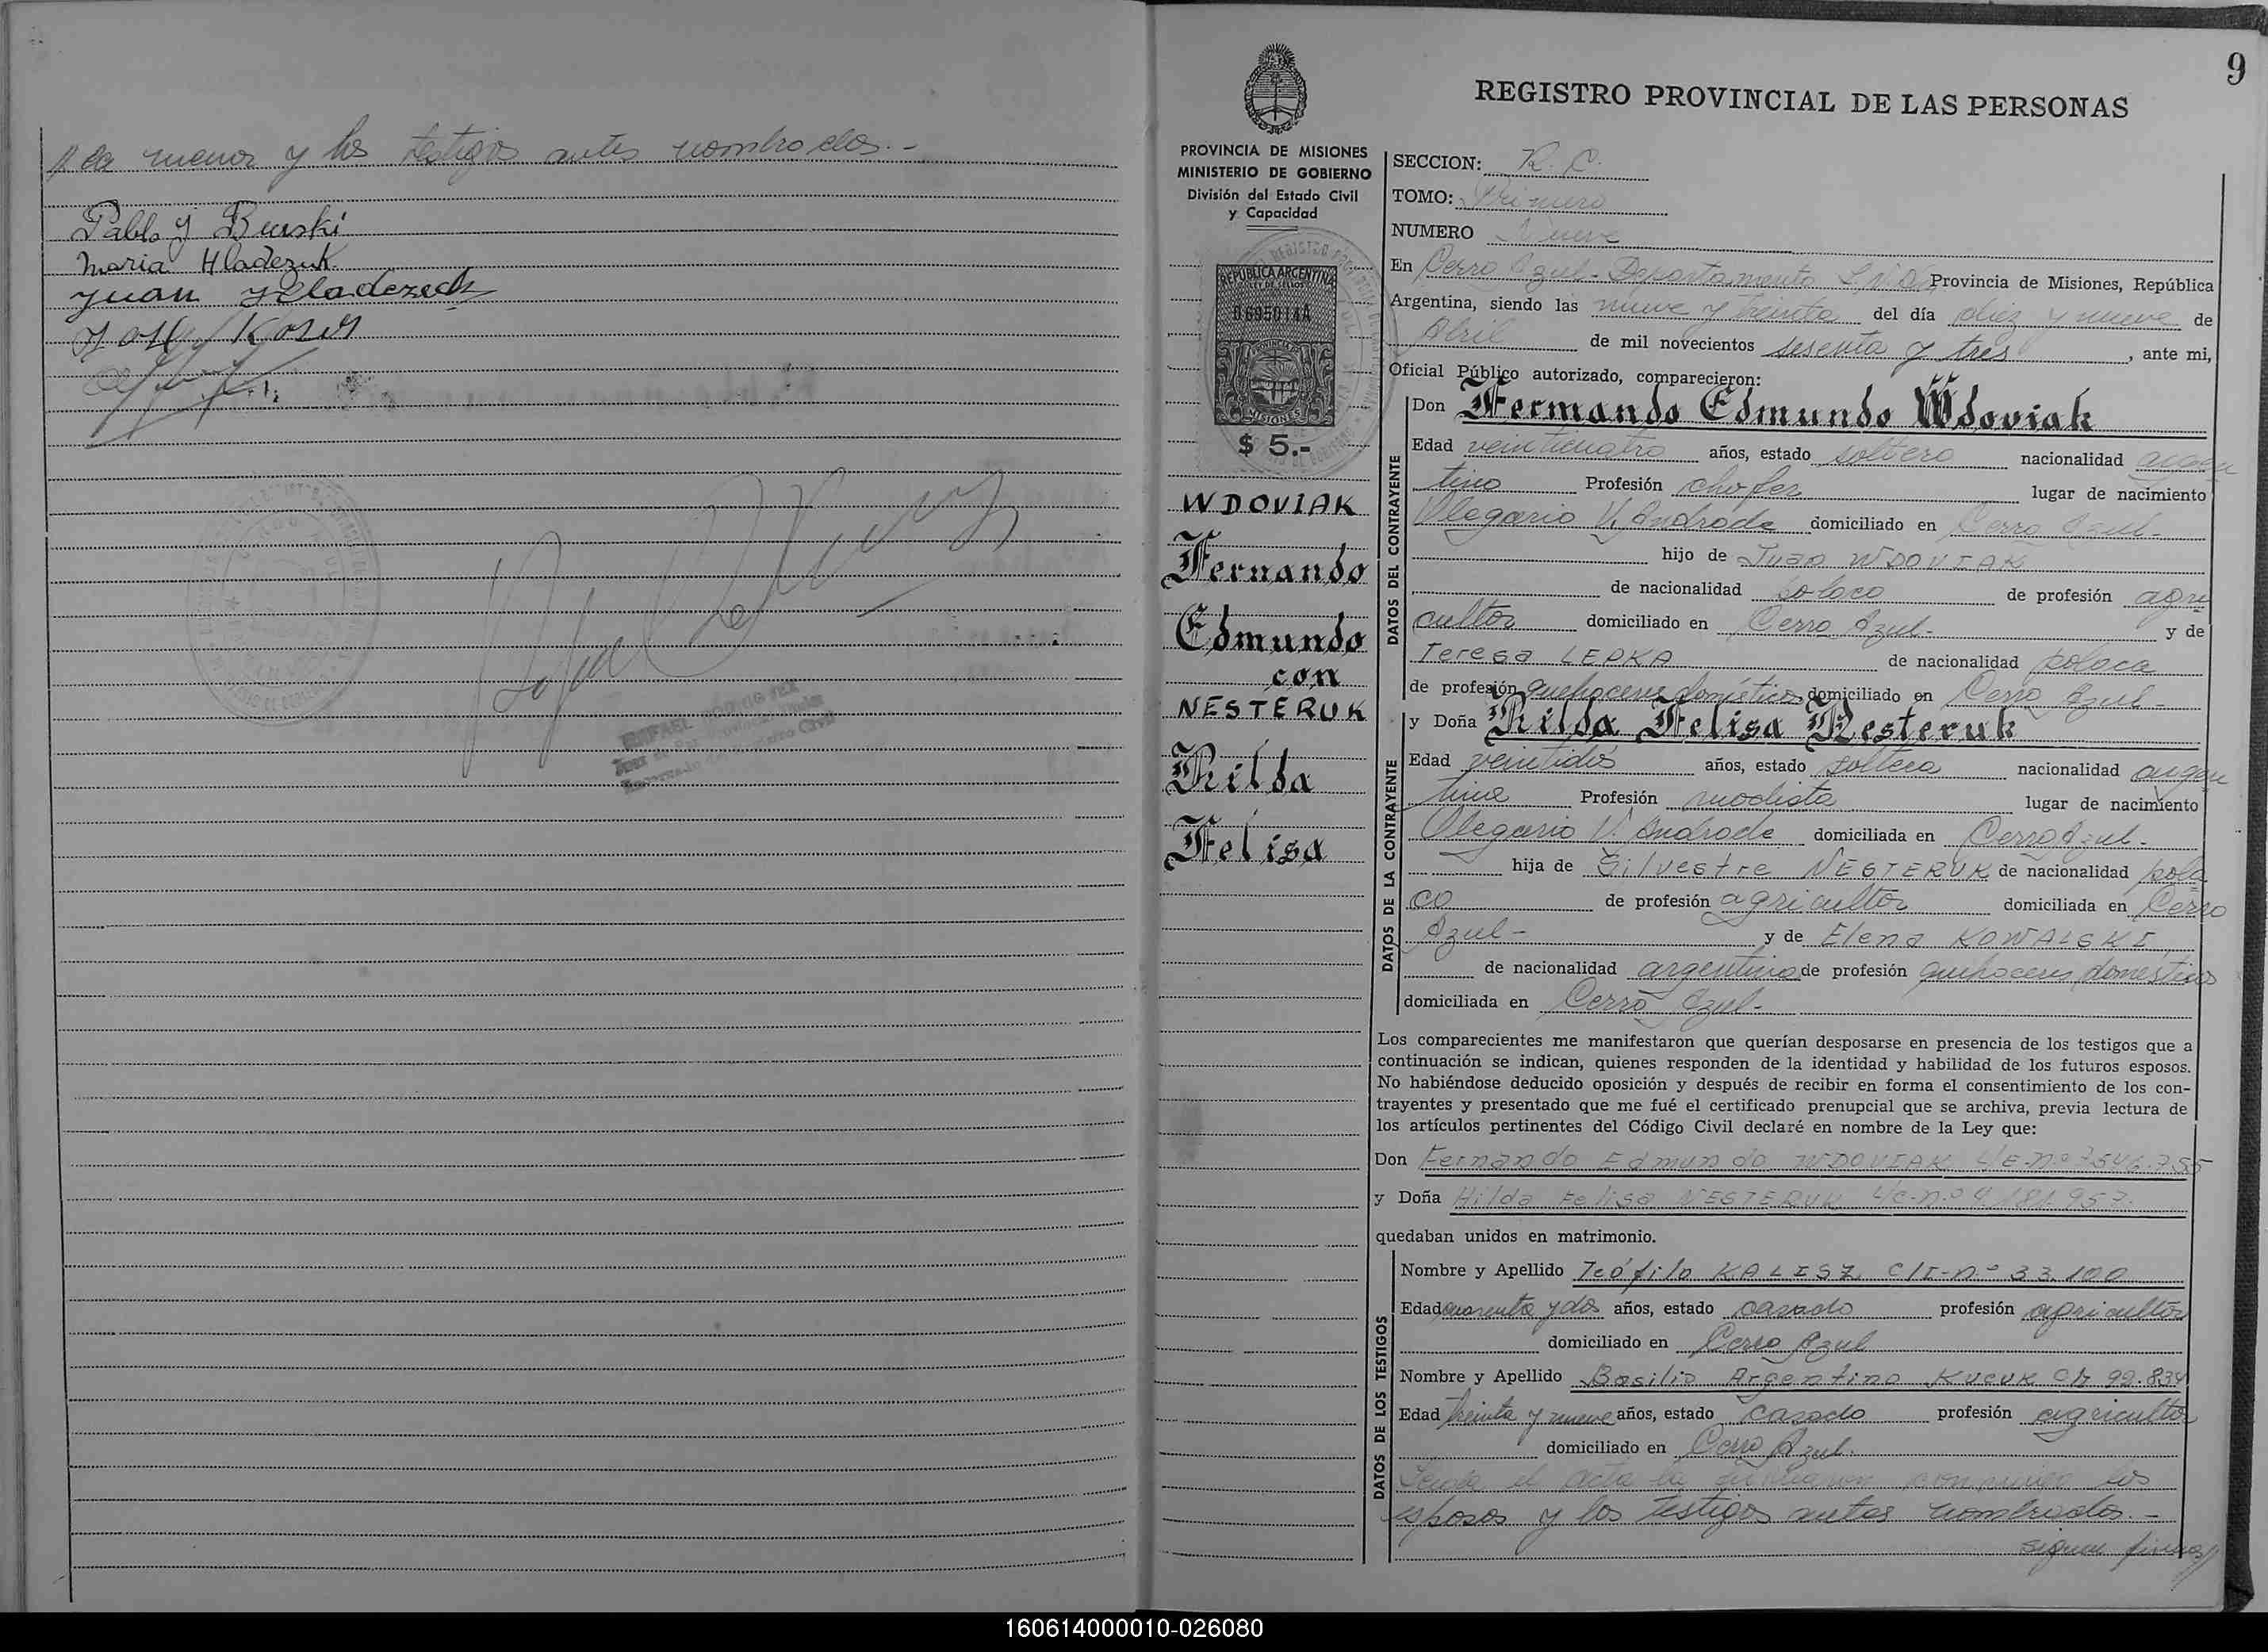 de la menor y los testigos antes nombrados.-
Pablo J Burski
Maria Hladczuk
Juan Hladczuk
9
REGISTRO PROVINCIAL DE LAS PERSONAS
PROVINCIA DE MISIONES
MINISTERIO DE GOBIERNO
División del Estado Civil
y Capacidad
REPUBLICA ARGENTINA
LEY DE SELLOS
0695014A
PROVINCIA DE
MISIONES
$ 5.-
WDOVIAK
Fernando
Edmundo
con
NESTERUK
Hilda
Felisa
SECCION: R. C.
TOMO: Primero
NUMERO Nueve
En Cerro Azul - Departamento L.N.A. Provincia de Misiones, República
Argentina, siendo las nueve y treinta del día diez y nueve de
Abril de mil novecientos sesenta y tres, ante mi,
Oficial Público autorizado, comparecieron:
DATOS DEL CONTRAYENTE
Don Fermando Edmundo Wdoviak
Edad veinticuatro años, estado soltero nacionalidad argen
tino Profesión chofer lugar de nacimiento
Olegario V. Andrade domiciliado en Cerro Azul-
hijo de Juan WDOVIAK
de nacionalidad polaco de profesión agri
cultor domiciliado en Cerro Azul- y de
Teresa LEPKA de nacionalidad polaca
de profesión quehaceres domésticos domiciliado en Cerro Azul-
DATOS DE LA CONTRAYENTE
y Doña Hilda Felisa Nesteruk
Edad veintidós años, estado soltera nacionalidad argen
tina Profesión modista lugar de nacimiento
Olegario V. Andrade domiciliada en Cerro Azul-
hija de Silvestre NESTERUK de nacionalidad pola
co de profesión agricultor domiciliada en Cerro
Azul- y de Elena KOWALSKI
de nacionalidad argentina de profesión quehaceres domésticos
domiciliada en Cerro Azul-
Los comparecientes me manifestaron que querían desposarse en presencia de los testigos que a
continuación se indican, quienes responden de la identidad y habilidad de los futuros esposos.
No habiéndose deducido oposición y después de recibir en forma el consentimiento de los con-
trayentes y presentado que me fué el certificado prenupcial que se archiva, previa lectura de
los artículos pertinentes del Código Civil declaré en nombre de la Ley que:
Don Fernando Edmundo WDOVIAK L/E-n.º 7.546.755
y Doña Hilda Felisa NESTERUK L/C-n.º 4.181.957.
quedaban unidos en matrimonio.
DATOS DE LOS TESTIGOS
Nombre y Apellido Teófilo KALISZ C/I-n.º 33.100
Edad cuarenta y dos años, estado casado profesión agricultor
domiciliado en Cerro Azul
Nombre y Apellido Basilio Argentino KUCUK 92.834
Edad treinta y nueve años, estado casado profesión agricultor
domiciliado en Cerro Azul.
Leída el acta la firmaron conmigo los
esposos y los testigos antes nombrados.-
siguen firmas//
160614000010-026080